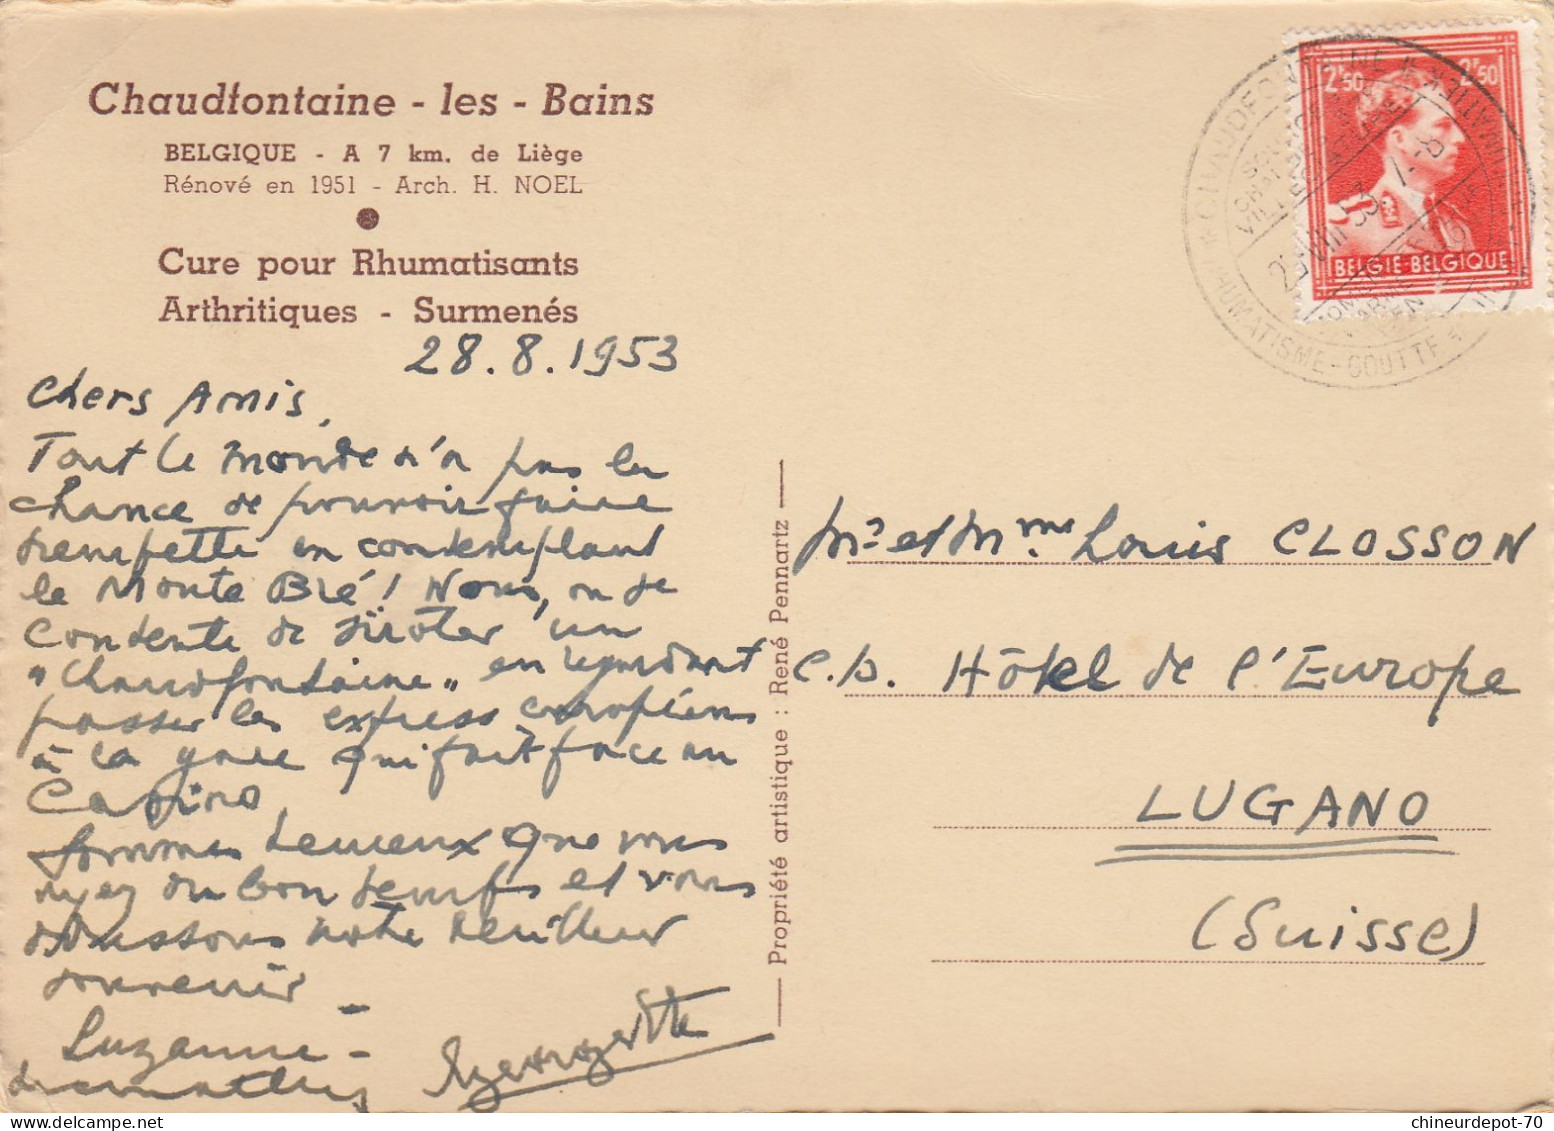 Chaudfontaine - les - Bains
BELGIQUE - A 7 km. de Liège
Rénové en 1951 - Arch. H. NOEL
Cure pour Rhumatisants
Arthritiques - Surmenés
28.8.1953
Chers Amis,
Tout le monde n'a pas la
chance de pouvoir faire
trempette en contemplant
le Monte Bré! Nous, on se
contente de siroter un
"Chaudfontaine" en regardant
passer les express européens
à la gare qui fait face au
Casino
Sommes heureux que vous
ayez du bon temps et vous
adressons notre meilleur
souvenir -
Suzanne -
Georgette
Propriété artistique : René Pennartz
Mr et Mme Louis CLOSSON
c.s. Hôtel de l'Europe
LUGANO
(Suisse)
2F50 2F50
BELGIE-BELGIQUE
CHAUDFONTAINE
RHUMATISME - GOUTTE
chineurdepot-70